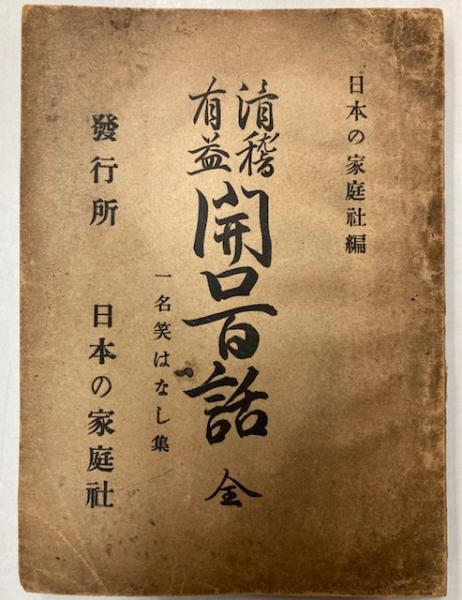 日本の家庭社編
滑稽
有益
開口百話 全
一名笑はなし集
發行所 日本の家庭社